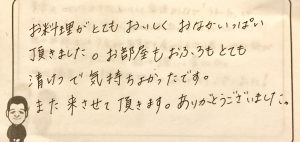 お料理がとてもおいしくおなかいっぱい
頂きました。お部屋もおふろもとても
清けつで気持ちよかったです。
また来させて頂きます。ありがとうございました。